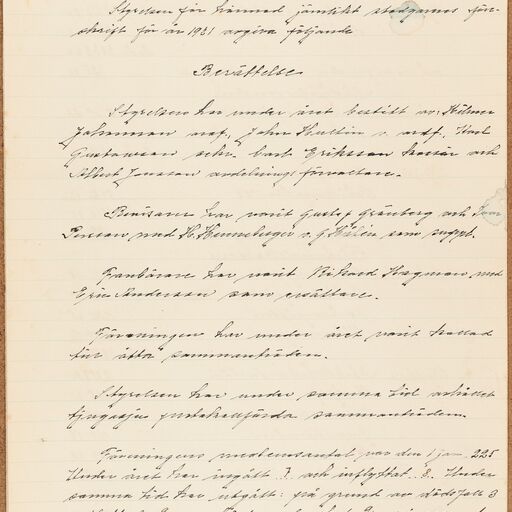 Styrelsen får härmed jämlikt stadgarnas före-
skrift för år 1931 avgiva följande
Berättelse
Styrelsen har under året bestått av: Hilmer
Johansson ordf., John Hultin v. ordf., Karl
Gustavsson sekr. Carl Eriksson kassör och
Albert Jonsson avdelnings föreståndare.
Revisorer har varit Gustaf Granberg och
Persson med H. Henneberger o. G. Hälén som suppl.
Fanbärare har varit Rikard Hagman med
Eric Andersson som ersättare.
Föreningen har under året varit kallad
till åtta sammanträden.
Styrelsen har under samma tid avhållit
tjugosju protokollförda sammanträden.
Föreningens medlemsantal var den 1 jan 225
Under året har ingått 7 och inflyttat 8. Under
samma tid har utgått: på grund av dödsfall 3